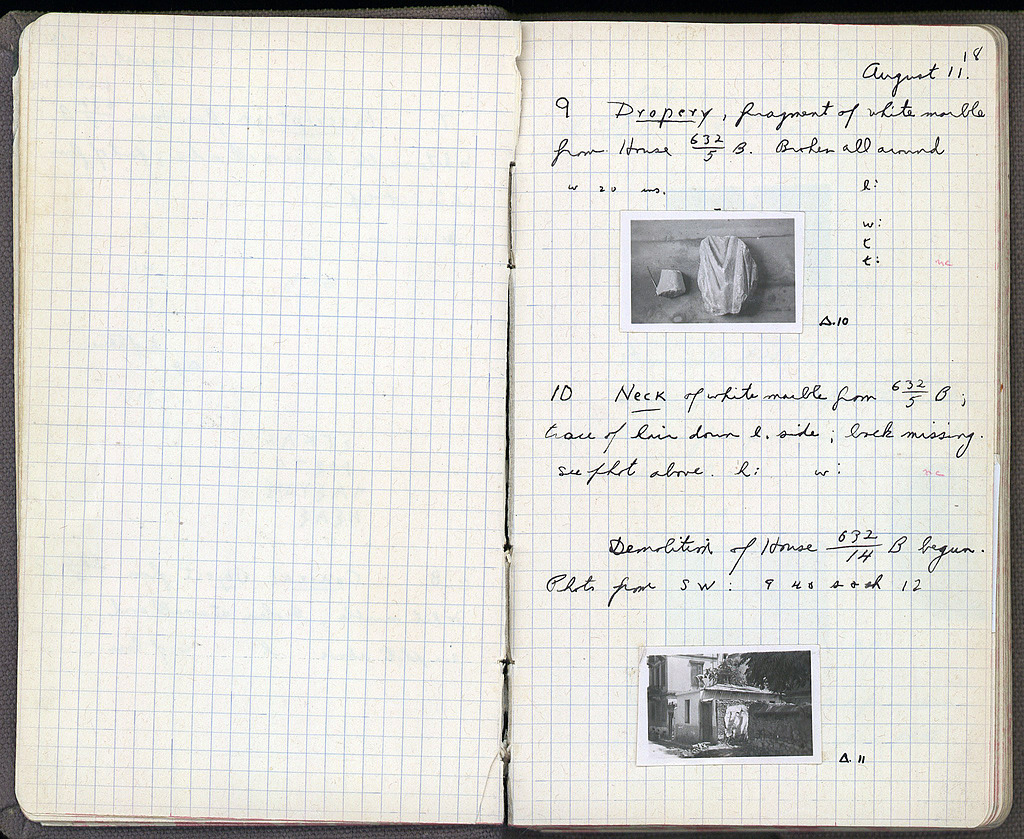 18
August 11.
9 Drapery, fragment of white marble
from House 632/5 B. Broken all around
w 20 ins. l:
w:
t
t: nc
Δ.10
10 Neck of white marble from 632/5 B;
trace of hair down l. side; back missing.
see phot above. h: w: nc
Demolition of House 632/14 B begun.
Photo from SW: 9 40 12
Δ.11